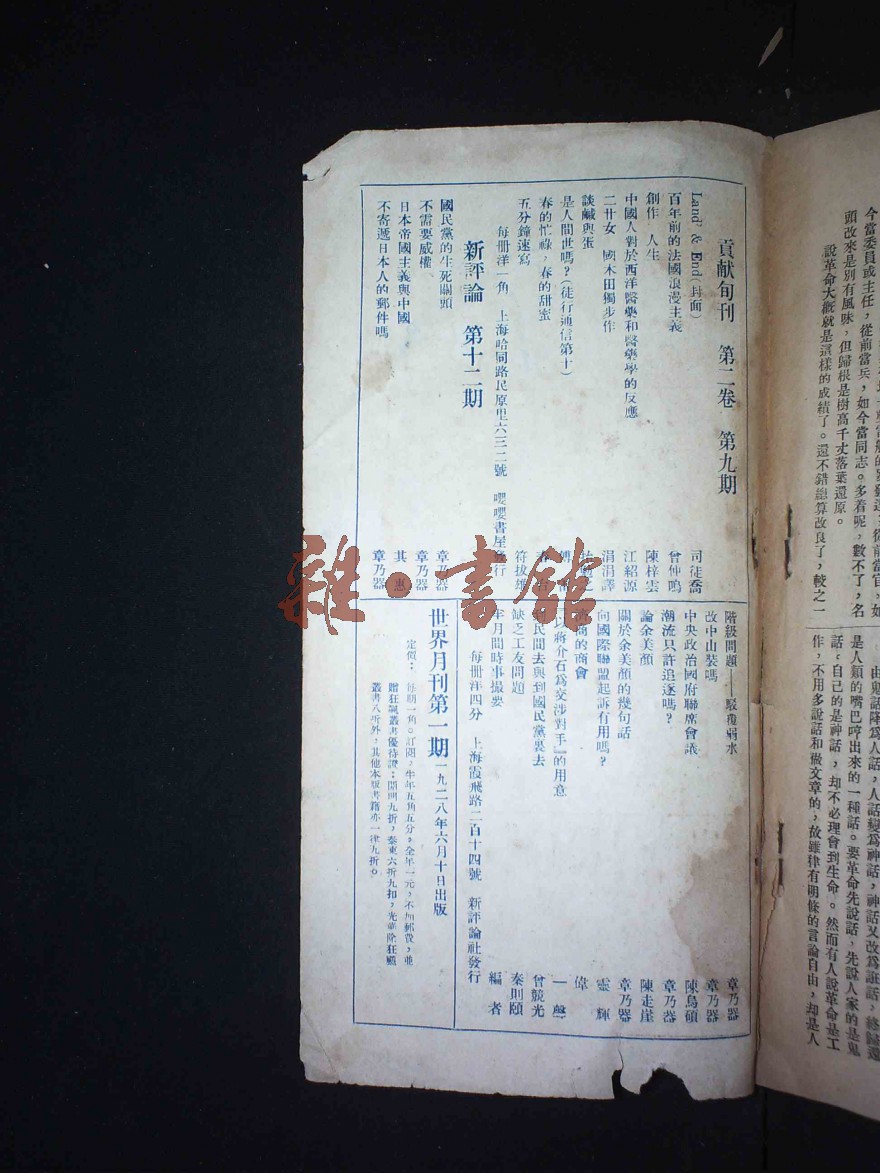 今當委員或主任，從前當兵，如今當同志。多着呢，數不了，名
頭改來是別有風味，但歸根是樹高千丈落葉還原。
說革命大概就是這樣的成績了。還不錯總算改良了，較之一
由鬼話降為人話，人話變為神話，神話又改為謊話，終歸還
是人類的嘴巴哼出來的一種話。要革命先說話，先說人家的是鬼
話，自己的是神話，却不必理會到生命。然而有人說革命是工
作，不用多說話和做文章的，故雖律有明條的言論自由，却是人
貢獻旬刊　第二卷　第九期
Land's & End(封面)　司徒喬
百年前的法國浪漫主義　曾仲鳴
創作　人生　陳梓雲
中國人對於西洋醫藥和醫藥學的反應　江紹源
二廿女　國木田獨步作　涓涓譯
談鹹與蛋
是人間世嗎？(徒行通信第十)
春的忙祿，春的甜蜜
五分鐘速寫　符拔雄
每冊洋一角　上海哈同路民厚里六三二號　嚶嚶書屋發行
新評論　第十二期
國民黨的生死關頭　章乃器
不需要威權　章乃器
日本帝國主義與中國　其惠
不寄遞日本人的郵件嗎　章乃器
階級問題——駁覆弱水　章乃器
改中山裝嗎　章乃器
中央政治國府聯席會議　陳鳥碩
潮流只許追逐嗎？　章乃器
論余美顏　陳走崖
關於余美顏的幾句話　章乃器
向國際聯盟起訴有用嗎？　靈輝
商的商會　偉
以蔣介石為交涉對手』的用意　一聲
民間去與到國民黨裏去　曾競光
缺乏工友問題　秦則頤
半月間時事撮要　編者
每冊洋四分　上海霞飛路二百十四號　新評論社發行
世界月刊第一期　一九二八年六月十日出版
定價：每期一角。訂閱，半年五角五分。全年一元，不加郵費，並
贈狂飆叢書優待證：開明九折，泰東六折九扣，光華除狂飆
叢書八折外，其他本版書籍亦一律九折。
雜·書館